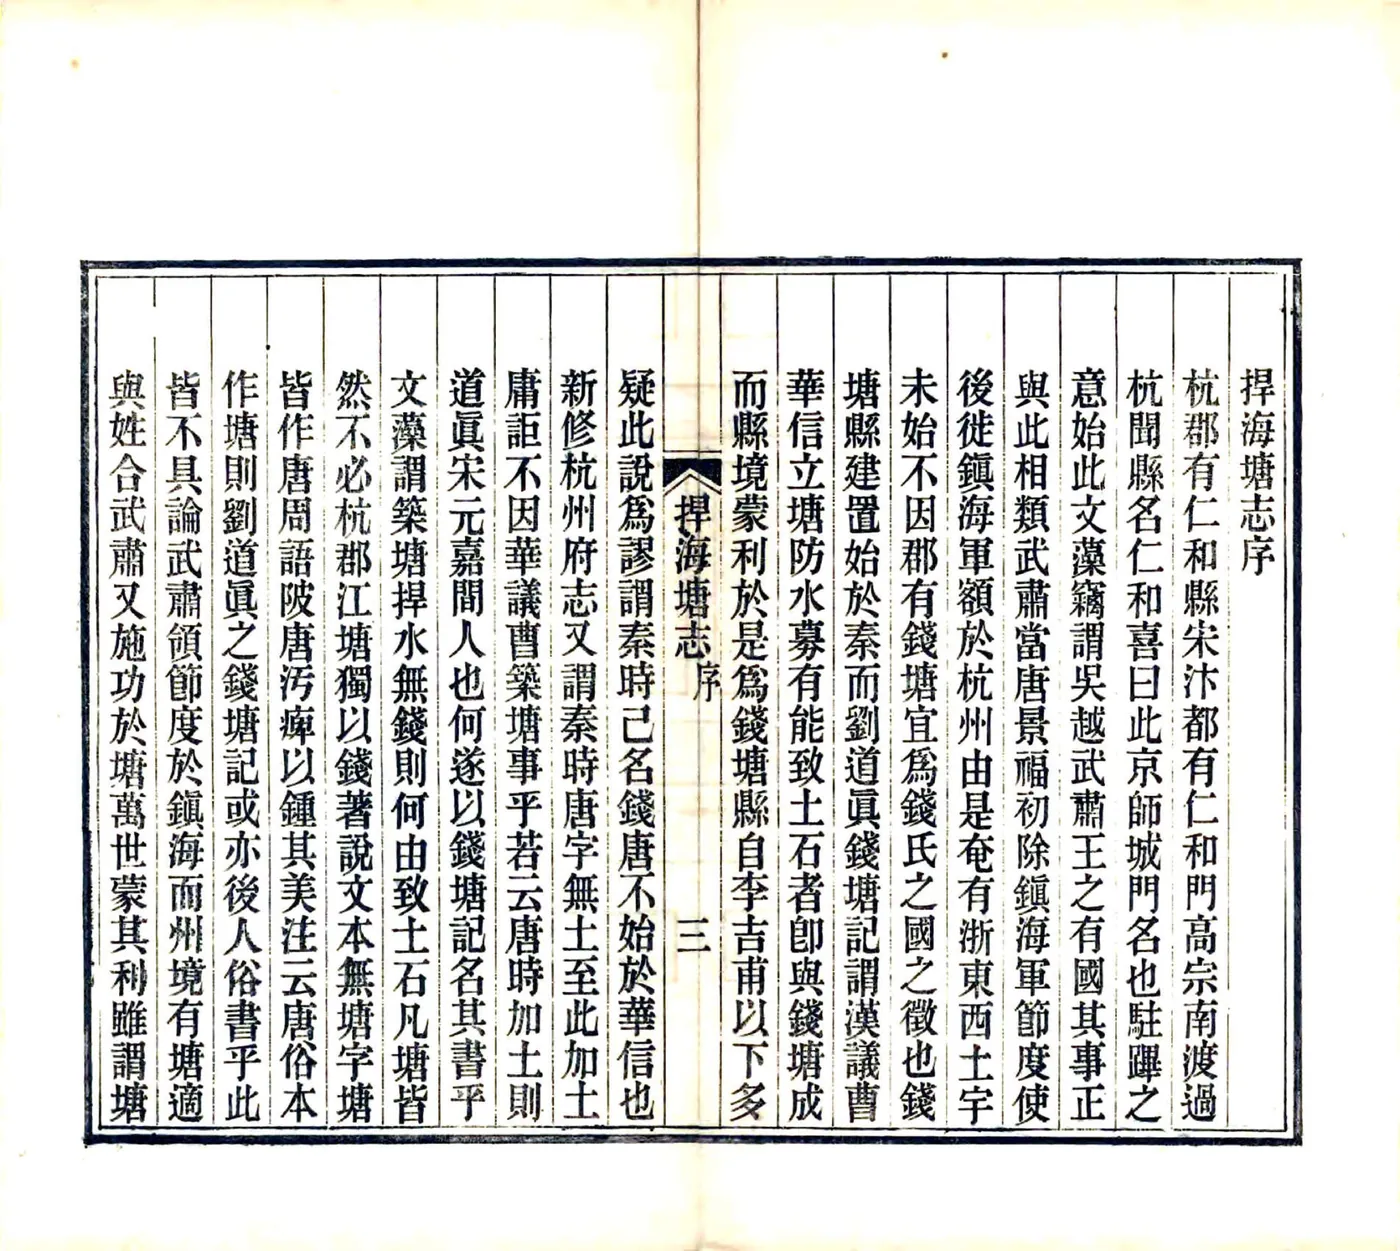 捍海塘志序
杭郡有仁和縣宋汴都有仁和門高宗南渡過
杭聞縣名仁和喜曰此京師城門名也駐蹕之
意始此文藻竊謂吳越武肅王之有國其事正
與此相類武肅當唐景福初除鎭海軍節度使
後徙鎭海軍額於杭州由是奄有浙東西土宇
未始不因郡有錢塘宜爲錢氏之國之徵也錢
塘縣建置始於秦而劉道眞錢塘記謂漢議曹
華信立塘防水募有能致土石者卽與錢塘成
而縣境蒙利於是爲錢塘縣自李吉甫以下多
捍海塘志
序
三
疑此說爲謬謂秦時己名錢唐不始於華信也
新修杭州府志又謂秦時唐字無土至此加土
庸詎不因華議曹築塘事乎若云唐時加土則
道眞宋元嘉間人也何遂以錢塘記名其書乎
文藻謂築塘捍水無錢則何由致土石凡塘皆
然不必杭郡江塘獨以錢著說文本無塘字塘
皆作唐周語陂唐汚庳以鍾其美注云唐俗本
作塘則劉道眞之錢塘記或亦後人俗書乎此
皆不具論武肅領節度於鎭海而州境有塘適
與姓合武肅又施功於塘萬世蒙其利雖謂塘